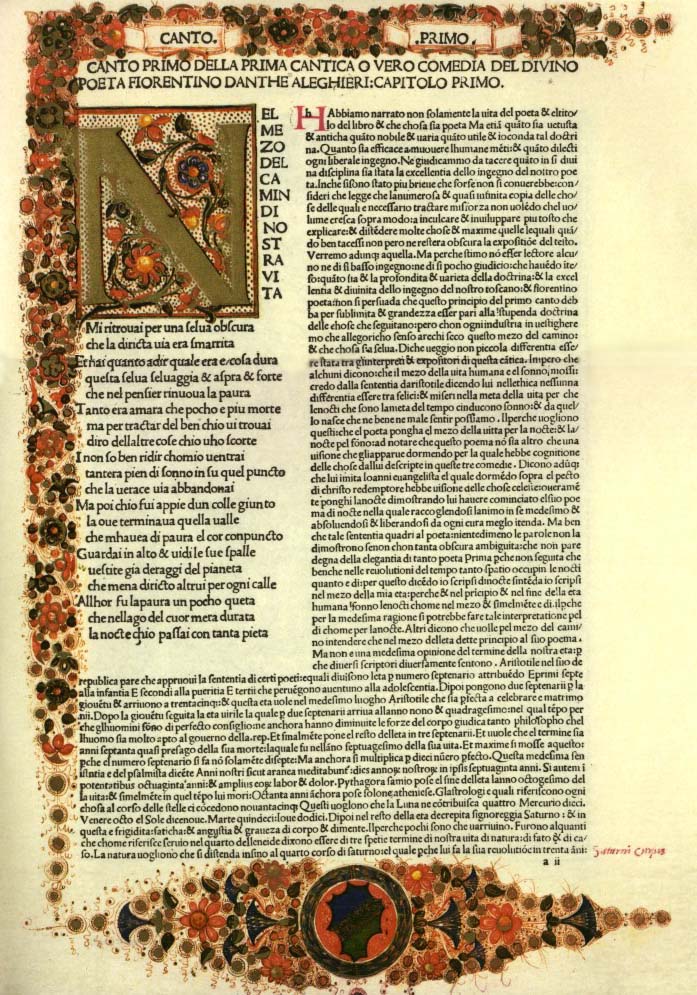 CANTO. .PRIMO.
CANTO PRIMO DELLA PRIMA CANTICA O VERO COMEDIA DEL DIVINO
POETA FIORENTINO DANTHE ALEGHIERI: CAPITOLO PRIMO.
N
EL
MEZO
DEL
CA
MIN
DI
NO
ST
RA
VI
TA
Mi ritrouai per una selua obscura
che la diricta uia era smarrita
Et hai quanto adir quale era e cosa dura
questa selua seluaggia & aspra & forte
che nel pensier rinuoua la paura
Tanto era amara che pocho e piu morte
ma per tractar del ben chio ui trouai
diro dellaltre cose chio uho scorte
I non so ben ridir chomio uentrai
tantera pien di sonno in su quel puncto
che la uerace uia abbandonai
Ma poi chio fui appie dun colle giunto
la oue terminaua quella ualle
che mhauea di paura el cor conpuncto
Guardai in alto & uidi le sue spalle
uestite gia deraggi del pianeta
che mena diricto altrui per ogni calle
Allhor fu lapaura un pocho queta
che nellago del cuor mera durata
la nocte chio passai con tanta pieta
HAbbiamo narrato non solamente la uita del poeta & eltito
lo del libro & che chosa sia poeta Ma etiã quãto sia uetusta
& anticha quãto nobile & uaria quãto utile & ioconda tal doctri
na. Quanto sia efficace a muouere lhumane mẽti: & quãto dilecti
ogni liberale ingegno. Ne giudicammo da tacere quãto in si diui
na disciplina sia stata la excellentia dello ingegno del nostro poe
ta. Inche sisono stato piu brieue che forse non si conuerebbe: con
sideri che legge che lanumerosa & quasi infinita copia delle cho
se delle quali e necessario tractare misforza non uolẽdo chel uo
lume cresca sopra modo: a inculcare & inuiluppare piu tosto che
explicare: & distẽdere molte chose & maxime quelle lequali quã
do ben tacessi non pero ne restera obscura la expositiõe del testo.
Verremo adunqȝ aquella. Ma perche stimo nõ esser lectore alcu
no ne di si basso ingegno: ne di si pocho giudicio: che hauẽdo ite
so: quãto sia & la profondita & uarieta della doctrina: & la excel
lentia & diuinita dello ingegno del nostro toscano: & fiorentino
poeta: non si persuada che questo principio del primo canto deb
ba per sublimita & grandezza esser pari alla stupenda doctrina
delle chose che seguitano: pero chon ogni industria in uestighere
mo che allegoricho senso arechi seco questo mezo del camino:
& che chosa sia selua. Diche ueggio non piccola differentia esse
re stata tra glinterpreti & expositori di questa cãtica. Impero che
alchuni dicono: che il mezo della uita humana e el sonno, mossi:
credo dalla sententia daristotile dicendo lui nellethica nessunna
differentia essere tra felici: & miseri nella meta della uita per che
lenocti che sono lameta del tempo cinducono sonno: & da quel
lo nasce che ne bene ne male sentir possiamo. Ilperche uogliono
questi: che el poeta pongha el mezo della uitta per la nocte: & la
nocte pel sõno: ad notare che questo poema nõ sia altro che una
uisione che gliapparue dormendo per la quale hebbe cognitione
delle chose dallui descripte in queste tre comedie. Dicono adũqȝ
che lui imita Ioanni euangelista el quale dormẽdo sopra el pecto
di christo redemptore hebbe uisione delle chose celeste: oueramẽ
te ponghi lanocte dimostrando lui hauere cominciato elsuo poe
ma di nocte nella quale raccoglendosi lanimo in se medesimo &
absoluendosi & liberando si da ogni cura meglo itenda. Ma ben
che tale sententia quadri al poeta: nientedimeno le parole non la
dimostrono senon chon tanta obscura ambiguita: che non pare
degna della elegantia di tanto poeta Prima pche non seguita che
benche nelle reuolutioni del tempo tanto spatio occupin le nocti
quanto e di: per questo dicẽdo io scripsi dinocte sintẽda io scripsi
nel mezo della mia eta: perche & nel pricipio & nel fine della eta
humana sonno lenocti chome nel mezo & similmẽte e di. ilpche
per la medesima ragione si potrebbe fare tale interpretatione pel
di chome per lanocte. Altri dicono che uolle pel mezo del cami
no intendere che nel mezo delleta dette principio al suo poema.
Ma non e una medesima opinione del termine della nostra eta: p
che diuersi scriptori diuersamente sentono. Aristotile nel suo de
republica pare che appruoui la sententia di certi poeti: equali diuisono leta p numero septenario attribuẽdo Eprimi septe
alla infantia E secondi alla pueritia E tertii che peruẽgono auentuno alla adolescentia. Dipoi pongono due septenarii p la
giouẽtu & arriuono a trentacinqȝ: & questa eta uole nel medesimo luogho Aristotile che sia pfecta a celebrare e matrimo
nii. Dopo la giouẽtu seguita la eta uirile la quale p due septenarii arriua allanno nono & quadragesimo: nel qual tẽpo per
che glhuomini sono di perfecto consiglio: ne anchora hanno diminuite le forze del corpo giudica tanto philosopho chel
lhuomo sia molto apto al gouerno della .rep. Et finalmẽte pone el resto delleta in tre septenarii. Et uuole che el termine sia
anni septanta quasi presago della sua morte: laquale fu nellãno septuagesimo della sua uita. Et maxime si mosse aquesto:
pche el numero septenario si fa nõ solamẽte disepte: Ma anchora si multiplica p dieci nũero pfecto. Questa medesima sen
tentia e del psalmista dicẽte Anni nostri sicut aranea meditabunt: dies annoȝ nostroȝ in ipsis septuaginta anni. Si autem i
potentatibus octuaginta anni: & amplius eoȝ labor & dolor. Pythagora samio pose el fine delleta lanno octogesimo del
la uita: & similmẽte in quel tẽpo lui mori: Octanta anni ãchora pose solone atheniese. Glastrologi e quali riferiscono ogni
chosa al corso delle stelle ci cõcedono nouantacinqȝ Questi uoglono che la Luna ne cõtribuisca quattro Mercurio dieci.
Venere octo el Sole dicenoue. Marte quindeci: Ioue dodici. Dipoi nel resto della eta decrepita signoreggia Saturno: & in
questa e frigidita: saticha: & angustia & graueza di corpo & dimente. Ilperche pochi sono che uarriuino. Furono alquanti
che chome riferisce seruio nel quarto delleneide dixono essere di tre spetie termine di nostra uita di natura: di fato & di ca
so. La natura uogliono che si distenda insino al quarto corso di saturno: el quale pche lui fa la sua reuolutiõe in trenta ãni:
Saturni Corpus
a ii